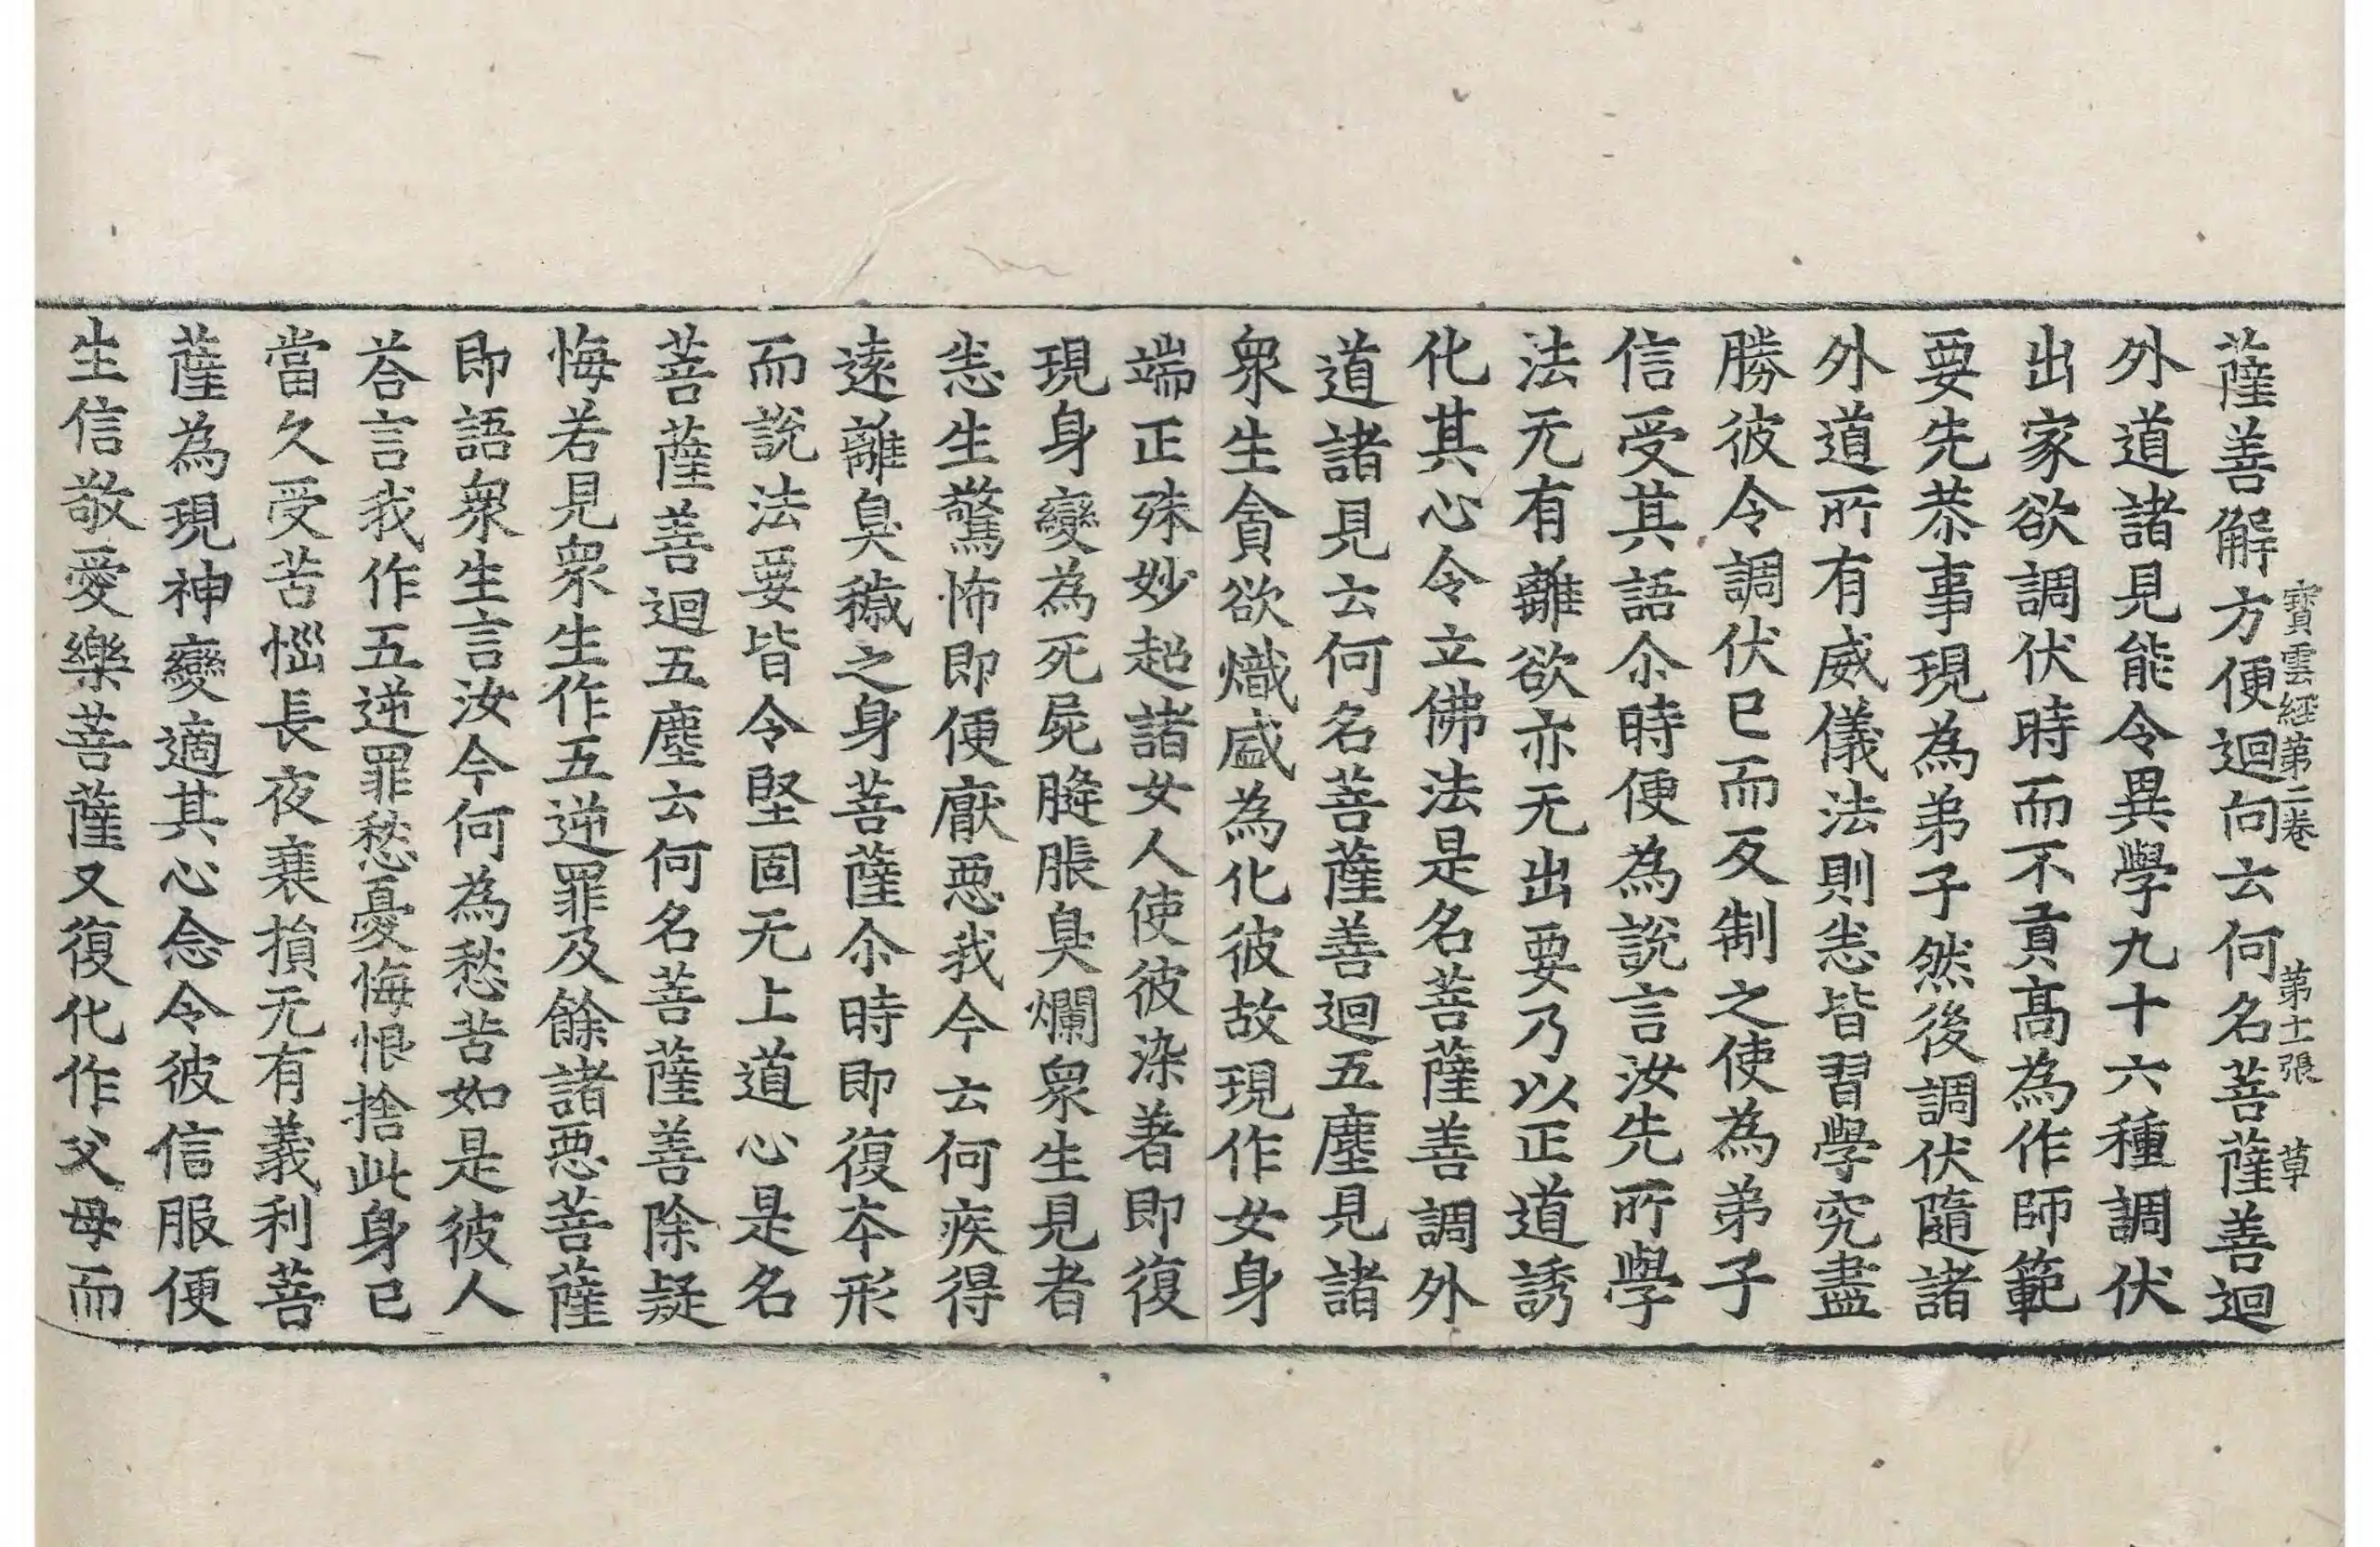 寳雲経第二卷　第十二張　草
薩善解方便迴向云何名菩薩善迴
外道諸見能令異學九十六種調伏
出家欲調伏時而不貢髙為作師範
要先恭事現為弟子然後調伏隨諸
外道所有威儀法則恙皆習學究盡
勝彼令調伏已而反制之使為弟子
信受其語尒時便為說言汝先所學
法无有離欲亦无出要乃以正道誘
化其心令立佛法是名菩薩善調外
道諸見云何名菩薩善迴五塵見諸
衆生貪欲熾盛為化彼故現作女身
端正殊妙超諸女人使彼染著即復
現身變為死屍膖脹臭爛衆生見者
恙生驚怖即便厭惡我今云何疾得
遠離臭穢之身菩薩尒時即復本形
而說法要皆令堅固无上道心是名
菩薩善迴五塵云何名菩薩善除疑
悔若見衆生作五逆罪及餘諸惡菩薩
即語衆生言汝今何為愁苦如是彼人
荅言我作五逆罪愁憂悔恨捨此身已
當久受苦惱長夜衰損无有義利菩
薩為現神變適其心念令彼信服便
生信敬愛樂菩薩又復化作父母而